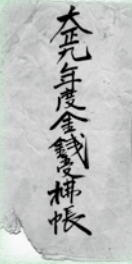 大正九年度金銭受拂帳